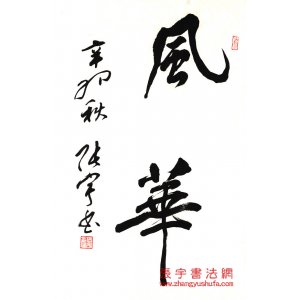 風華
辛卯秋 張宇書
張宇書法網
www.zhangyushufa.com